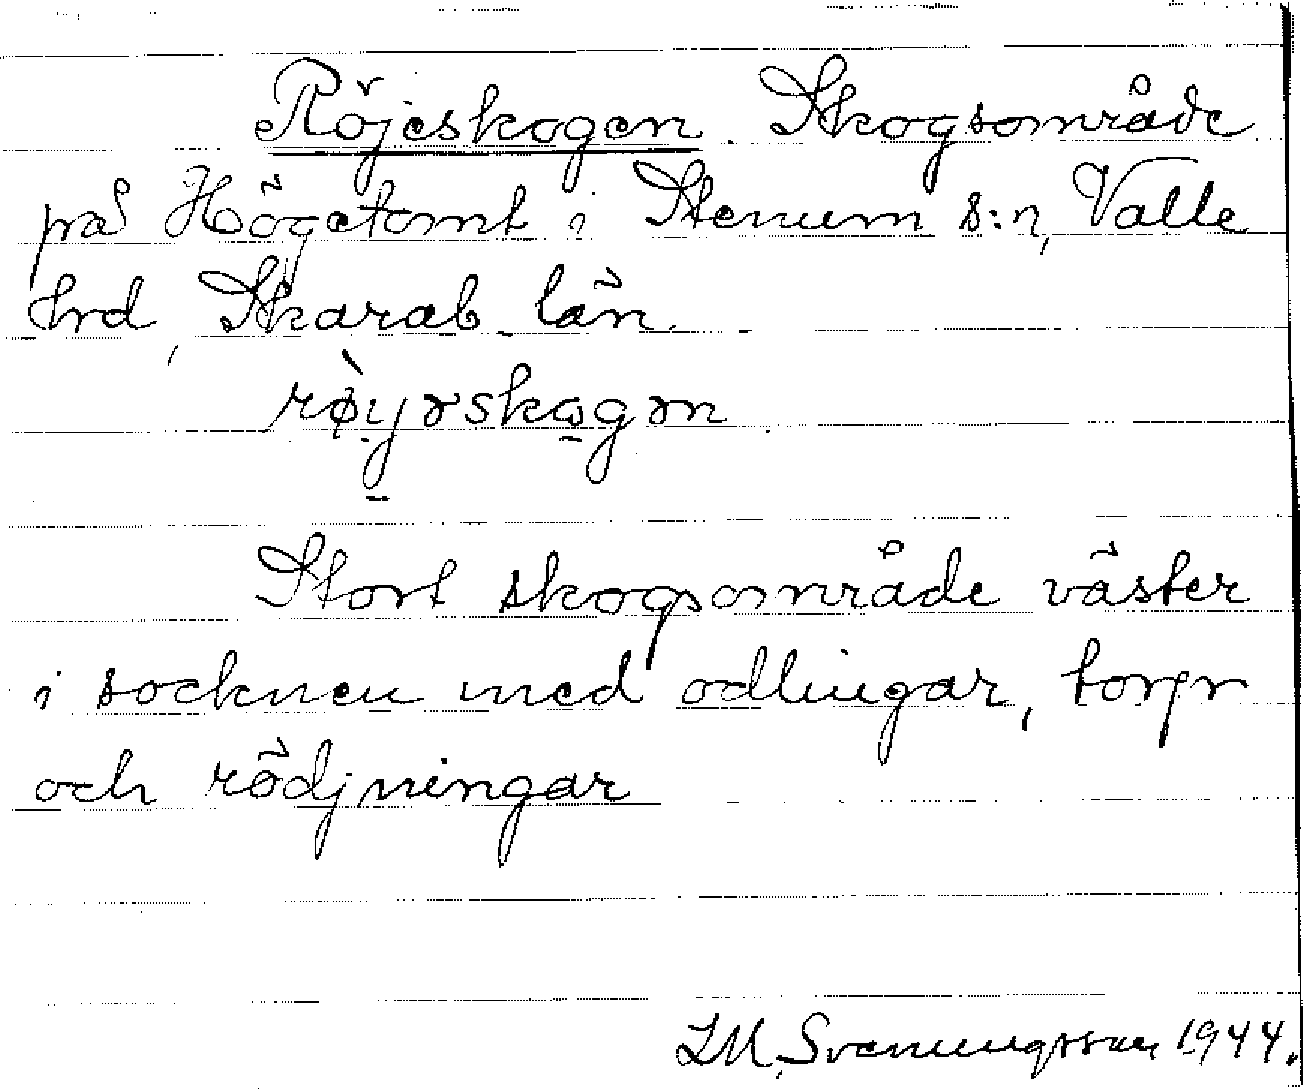 Röjeskogen. Skogsområde
på Högetomt i Stenum s:n, Valle
hrd, Skarab. län.
røyǝskogǝn
Stort skogsområde väster
i socknen med odlingar, torp
och rödjningar
LM, Svenungsson 1944.